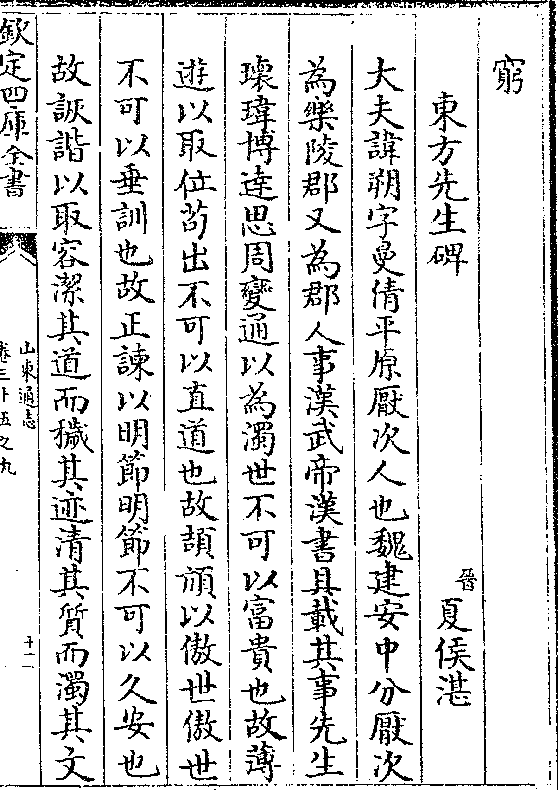 窮
東方先生碑
晉 夏侯湛
大夫諱朔字曼倩平原厭次人也魏建安中分厭次
為樂陵郡又為郡人事漢武帝漢書具載其事先生
瓌瑋博達思周變通以為濁世不可以富貴也故薄
遊以取位茍出不可以直道也故頡頏以傲世傲世
不可以垂訓也故正諫以明節明節不可以久安也
故詼諧以取容潔其道而穢其迹清其質而濁其文
欽定四庫全書
山東通志
卷三十五之九
十一